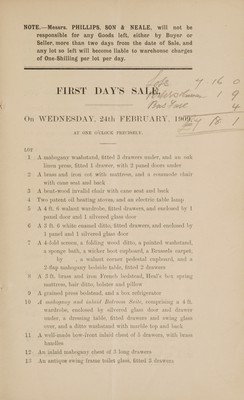 NOTE.—Messrs. PHILLIPS, SON & NEALE, will not be
responsible for any Goods left, either by Buyer or
Seller, more than two days from the date of Sale, and
any lot so left will become liable to warehouse charges
of One-Shilling per lot per day.
7 16 0
1 9
4
£7 18 1
FIRST DAY'S SALE.
On WEDNESDAY, 24th FEBRUARY, 1909,
AT ONE O'CLOCK PRECISELY.
LOT
1 A mahogany washstand, fitted 3 drawers under, and an oak
linen press, fitted 1 drawer, with 2 panel doors under
2 A brass and iron cot with mattress, and a commode chair
with cane seat and back
3 A bent-wood invalid chair with cane seat and back
4 Two patent oil heating stoves, and an electric table lamp
5 A 4 ft. 6 walnut wardrobe, fitted drawers, and enclosed by 1
panel door and 1 silvered glass door
6 A 3 ft. 8 white enamel ditto, fitted drawers, and enclosed by
1 panel and 1 silvered glass door
7 A 4-fold screen, a folding wood ditto, a painted washstand,
a sponge bath, a wicker boot cupboard, a Brussels carpet,
by , a walnut corner pedestal cupboard, and a
2-flap mahogany bedside table, fitted 2 drawers
8 A 3 ft. brass and iron French bedstead, Heal's box spring
mattress, hair ditto, bolster and pillow
9 A grained press bedstead, and a box refrigerator
10 A mahogany and inlaid Bedroom Suite, comprising a 4 ft.
wardrobe, enclosed by silvered glass door and drawer
under, a dressing table, fitted drawers and swing glass
over, and a ditto washstand with marble top and back
11 A well-made bow-front inlaid chest of 5 drawers, with brass
handles
12 An inlaid mahogany chest of 3 long drawers
13 An antique swing frame toilet glass, fitted 3 drawers